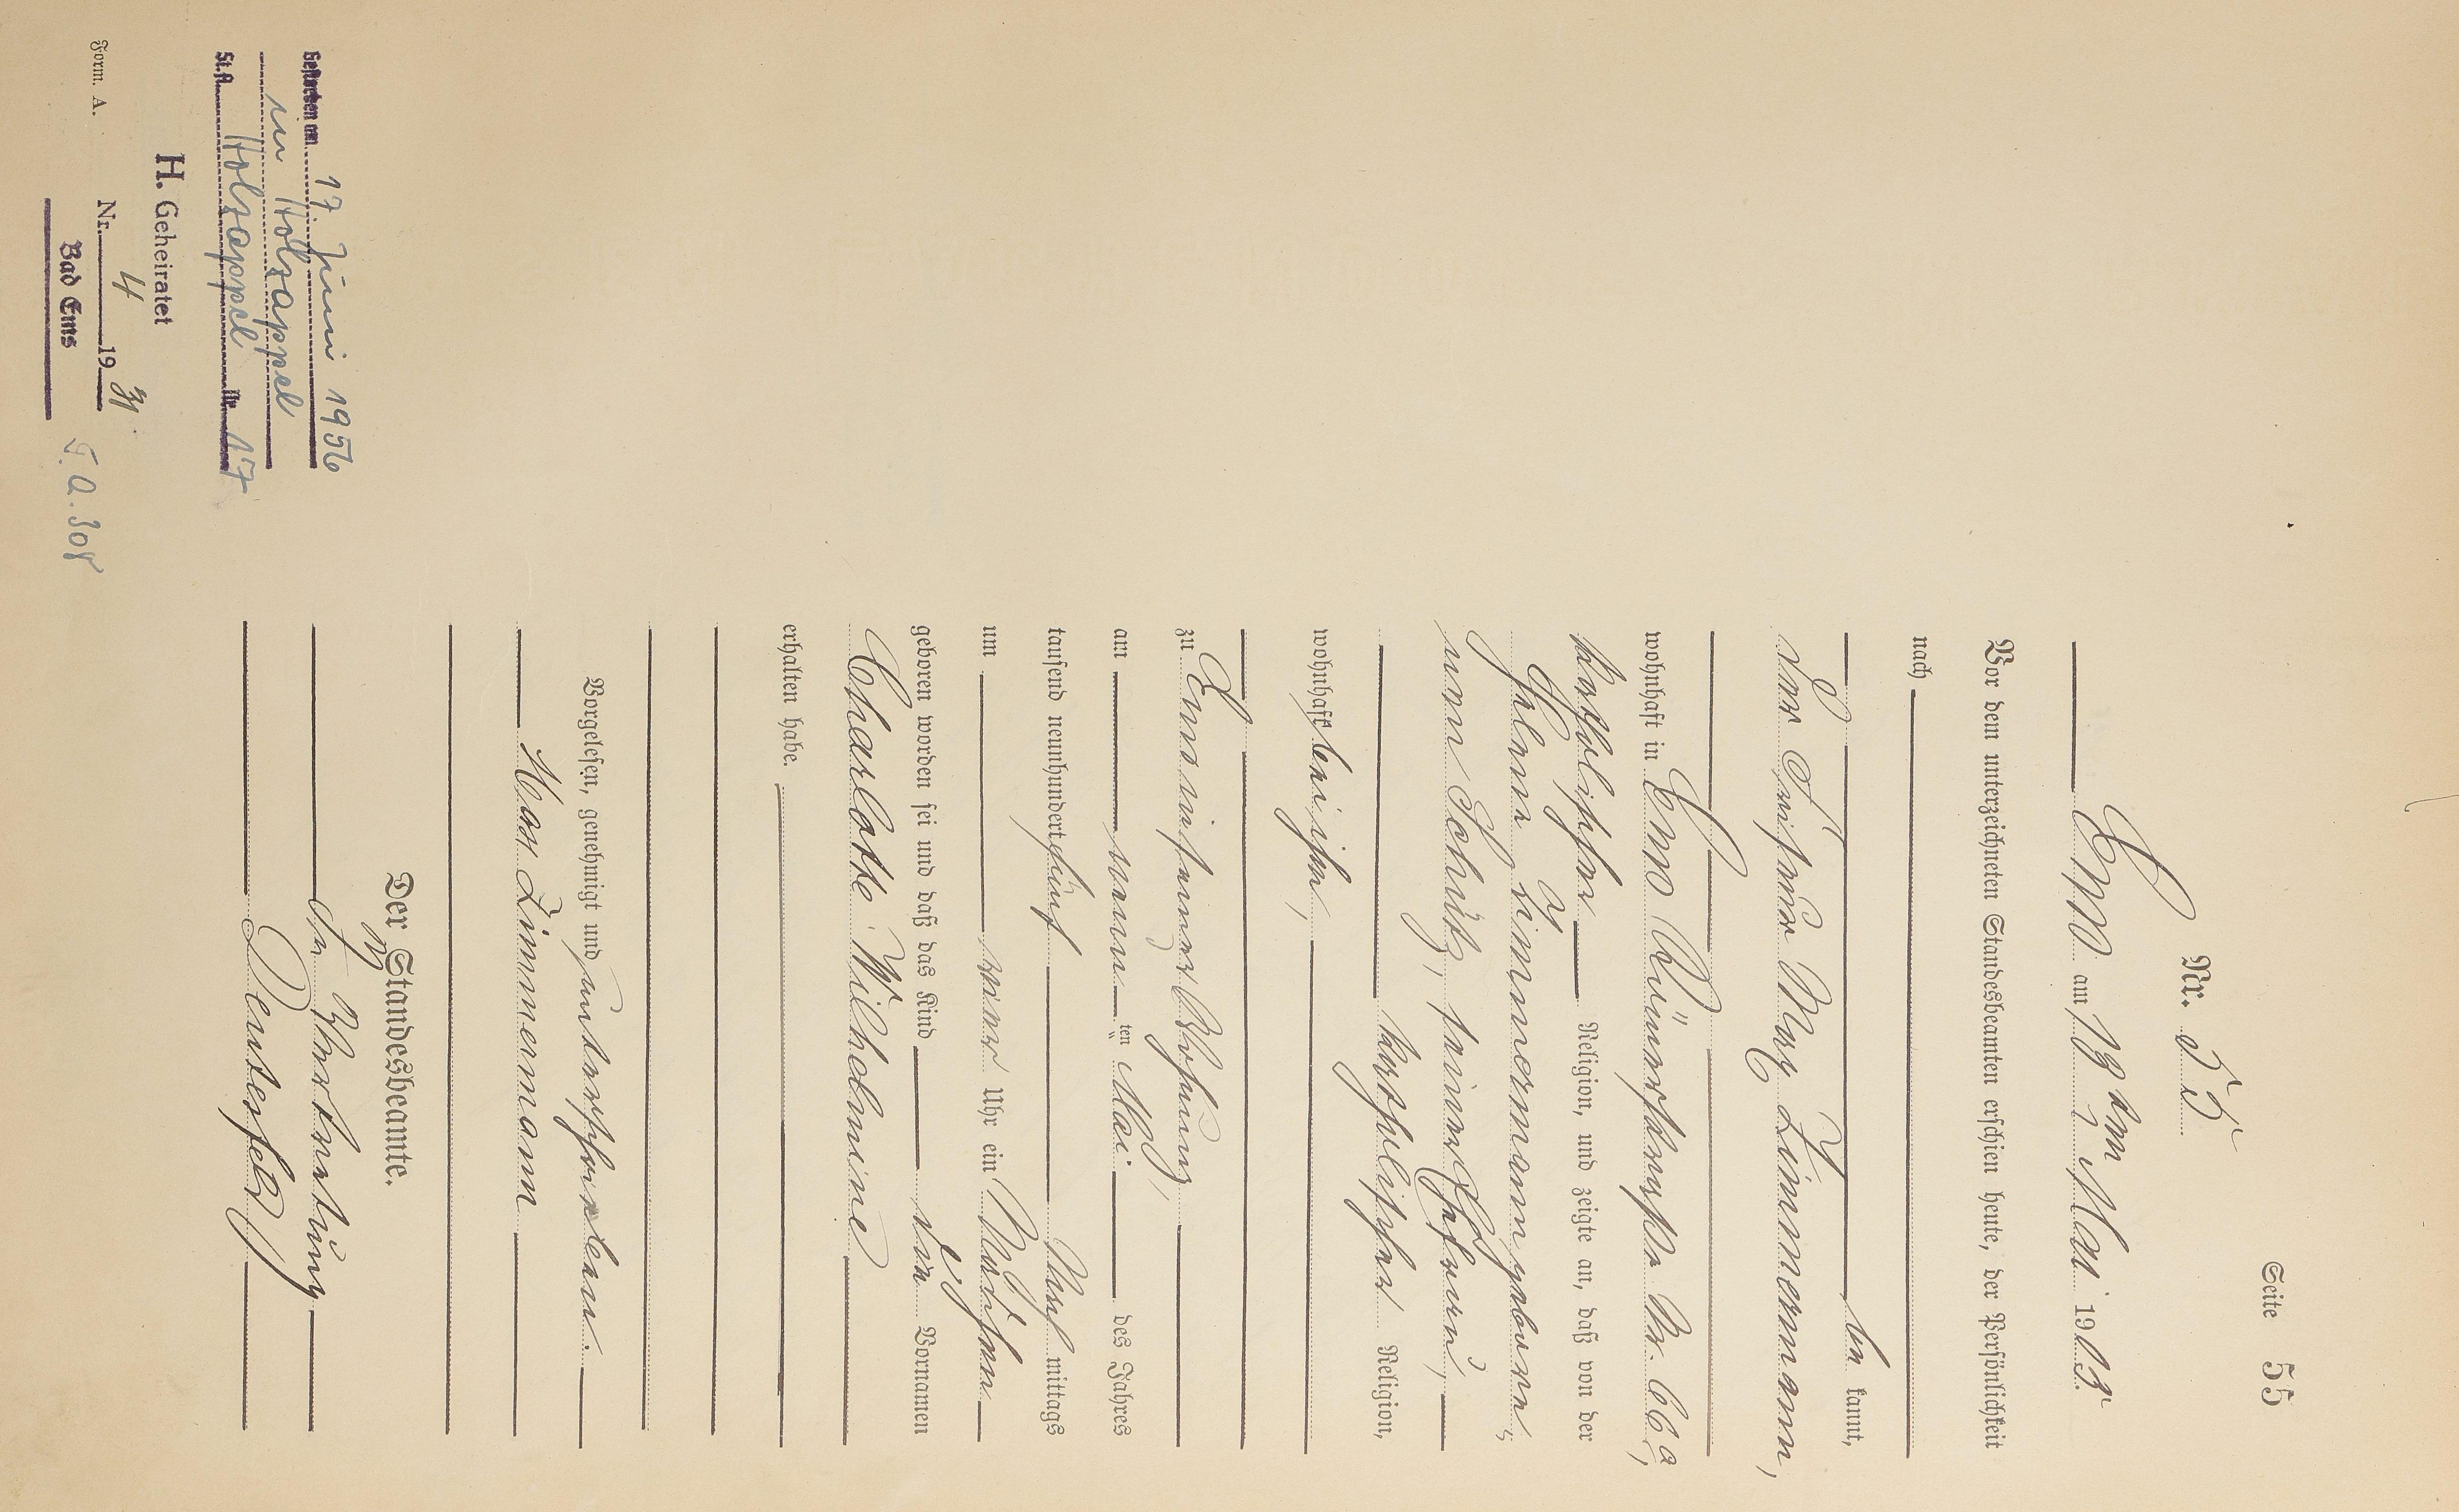 Seite 55
Nr. 55
Ems am 13ten Mai 1905.
Vor dem unterzeichneten Standesbeamten erschien heute, der Persönlichkeit
nach
be kannt,
der Friseur Max Zimmermann,
wohnhaft in Ems Römerstrasse Nr. 66a,
katholischer Religion, und zeigte an, daß von der
Zimmermann geborene
Schütz, seiner Ehefrau,
katholischer Religion,
wohnhaft bei ihm,
zu Ems in seiner Wohnung,
am neunten Mai des Jahres
tausend neunhundert fünf Nach mittags
um Uhr ein Mädchen
geboren worden sei und daß das Kind die Vornamen
Charlotte Wilhelmine
erhalten habe.
Vorgelesen, genehmigt und unterschrieben.
Max Zimmermann
Der Standesbeamte.
In Vertretung
Gestorben am 17 Juni 1956
in Holzappel
St.A. Holzappel Nr. 17
H. Geheiratet
Nr. 4 1931.
Bad Ems
Form. A.